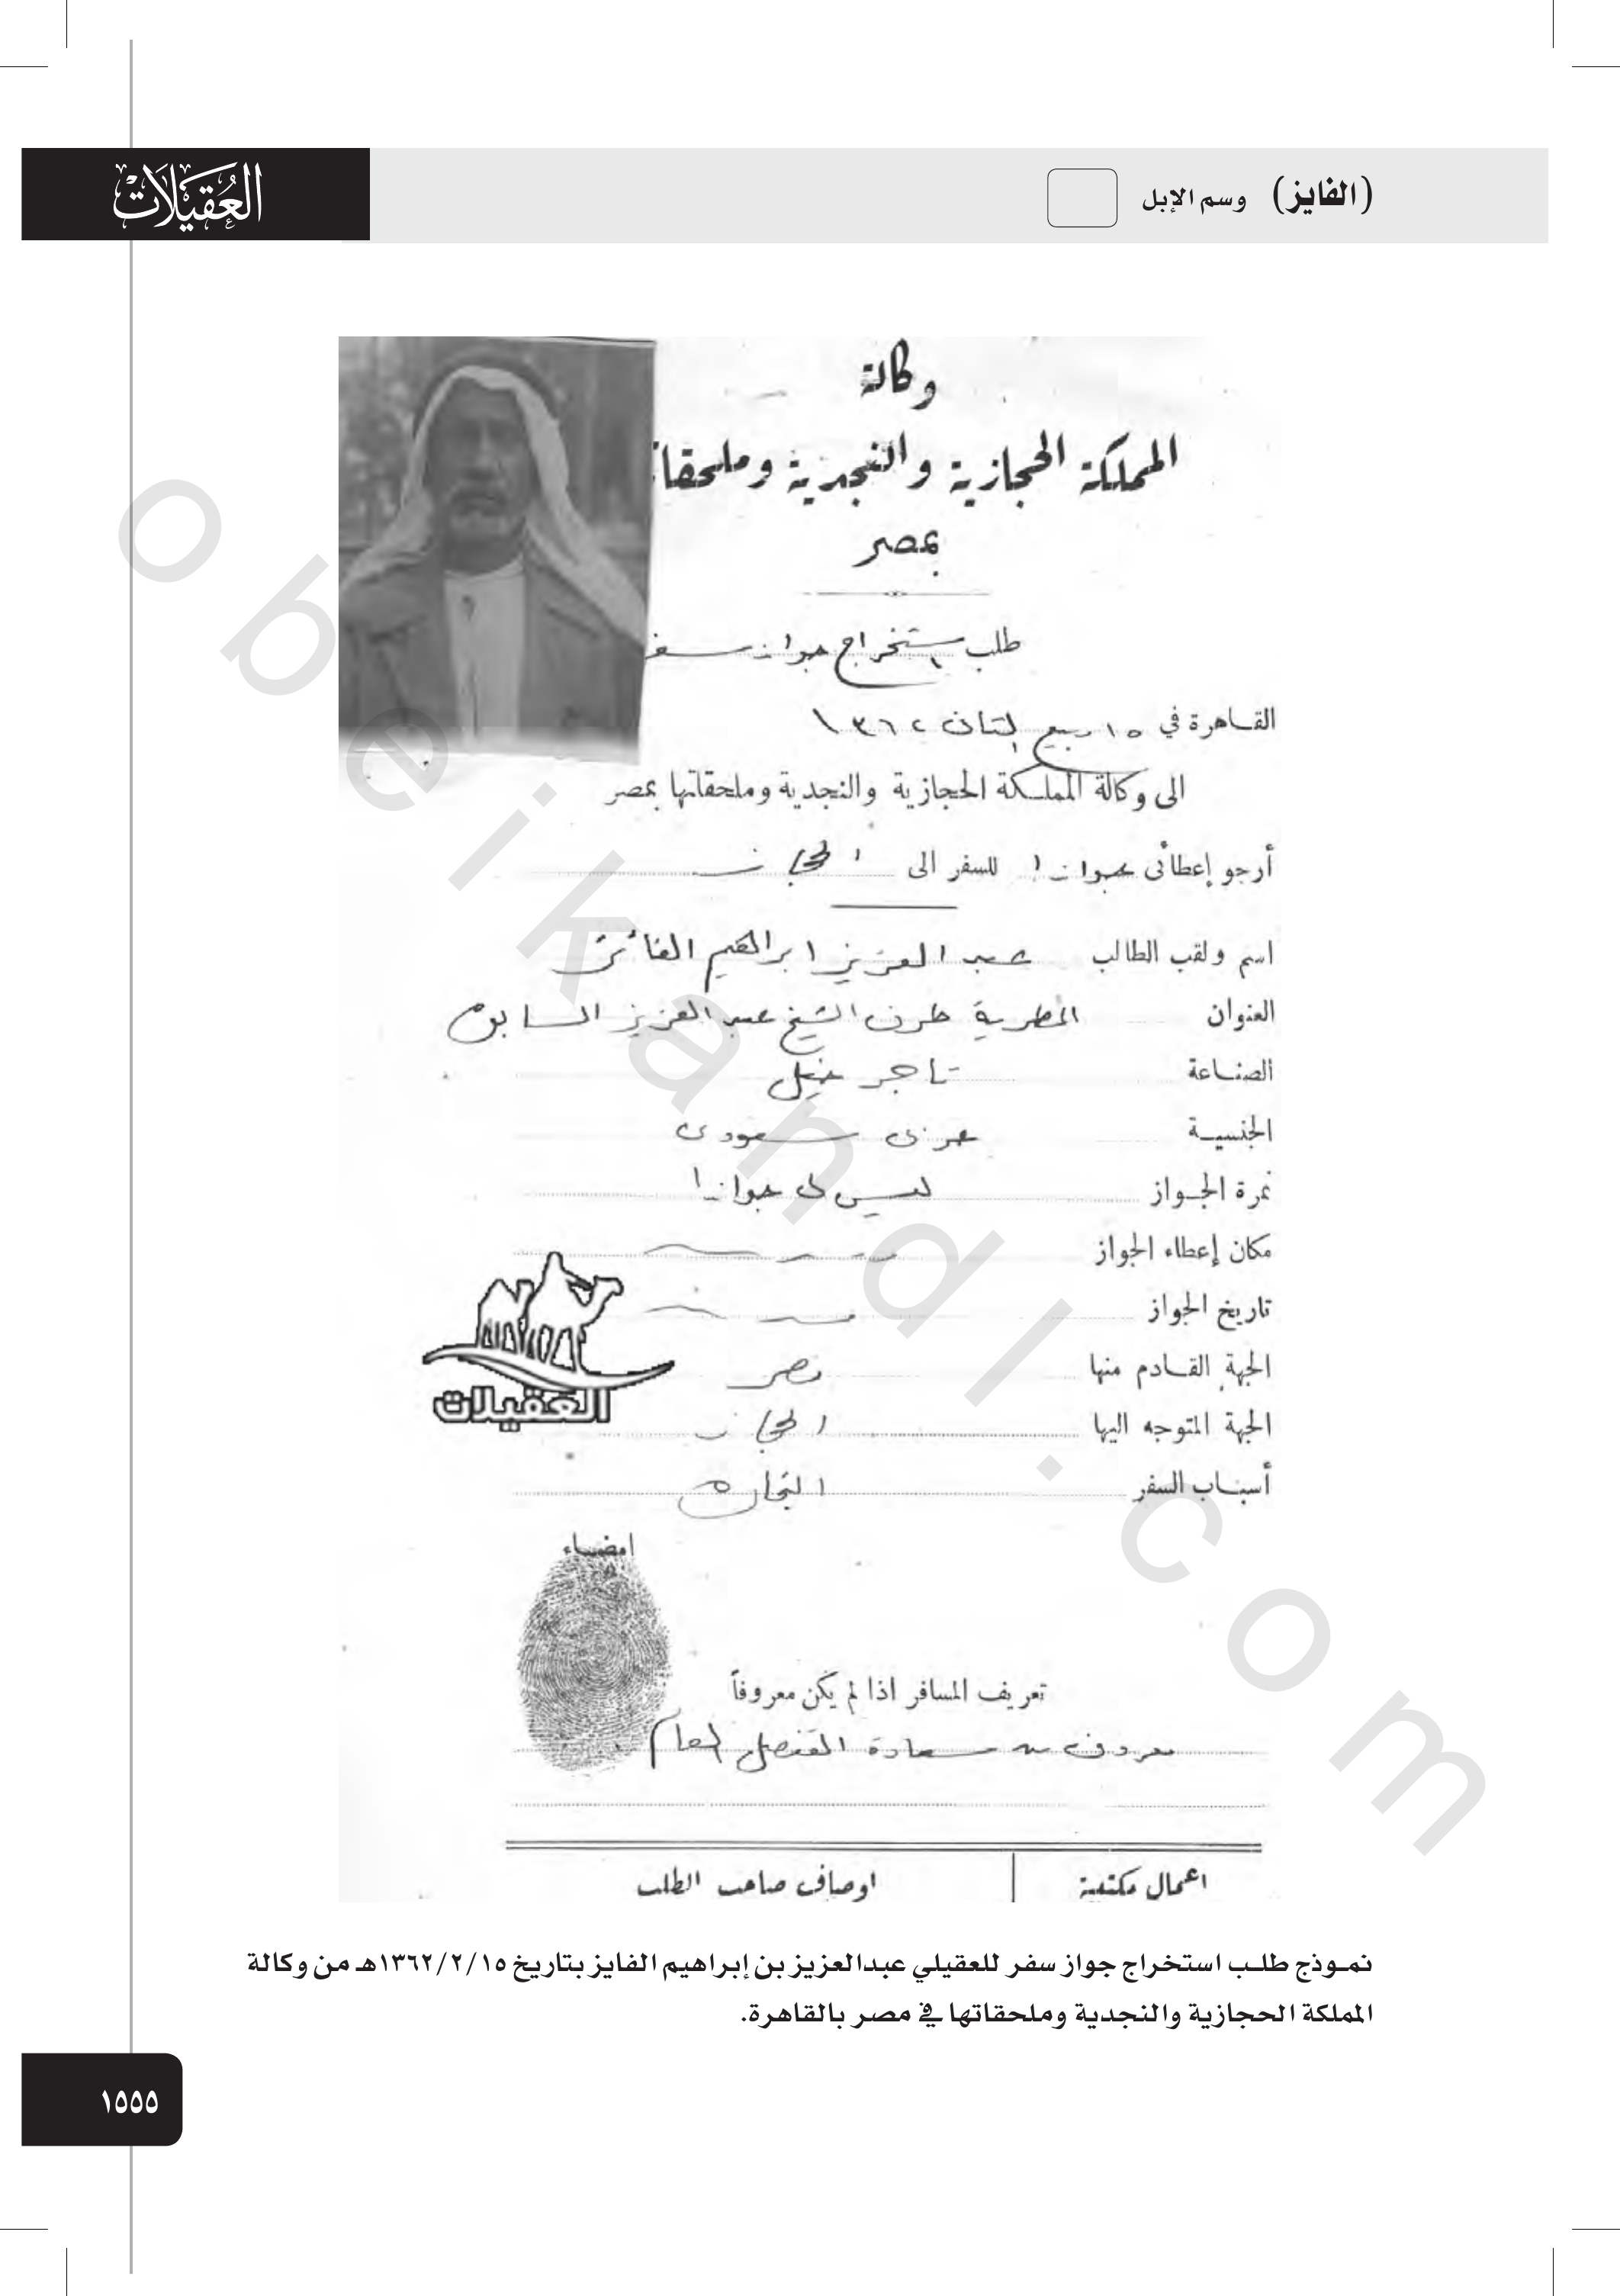 (الفايز) وسم الإبل
العُقيَلات
وكالة
المملكة الحجازية والنجدية وملحقا
بمصر
طلب استخراج جواز سفر
القاهرة في ١٥ ربيع الثاني ١٣٦٢
الى وكالة المملكة الحجازية والنجدية وملحقاتها بمصر
أرجو إعطائى جوازا للسفر الى الحجاز
اسم ولقب الطالب عبد العزيز ابراهيم الفائز
العنوان المطرية طرف الشيخ عبد العزيز
الصناعة تاجر خيل
الجنسية عربى سعودى
نمرة الجواز ليس لى جوازا
مكان إعطاء الجواز
تاريخ الجواز
الجهة القادم منها مصر
الجهة المتوجه اليها الحجاز
أسباب السفر التجاره
العقيلات
امضاء
تعريف المسافر اذا لم يكن معروفاً
معروف من سعادة القنصل العام
اعمال مكتبية اوصاف صاحب الطلب
نموذج طلب استخراج جواز سفر للعقيلي عبدالعزيز بن إبراهيم الفايز بتاريخ ١٣٦٢/٢/١٥هـ من وكالة
المملكة الحجازية والنجدية وملحقاتها في مصر بالقاهرة.
١٥٥٥
obeikandl.com